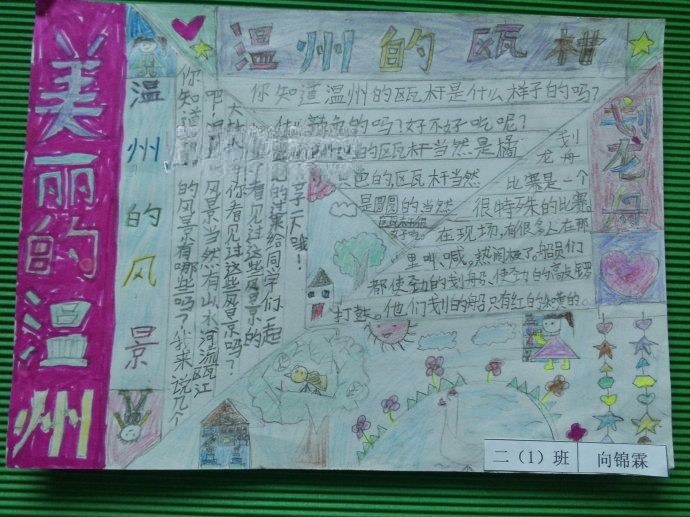 美丽的温州
温州的瓯柑
你知道温州的瓯柑是什么样子的吗?
什么颜色的吗?好不好吃呢?
的瓯柑当然是橘
色的,瓯柑当然
是圆圆的当然
划龙舟
划龙舟
比赛是一个
很特殊的比赛。
在现场,有很多人在那
里叫、喊。热闹极了,船员们
都使劲的划船、使劲的敲锣
打鼓。他们划的船只有红的和绿的。
温州的风景
你知道温州
的风景有哪些吗?我来说几个
吧!温州
风景当然有山水河流瓯江
你看见过这些风景吗?
看见过这些风景的
给同学们一起
享一天哦!
二(1)班
向锦霖